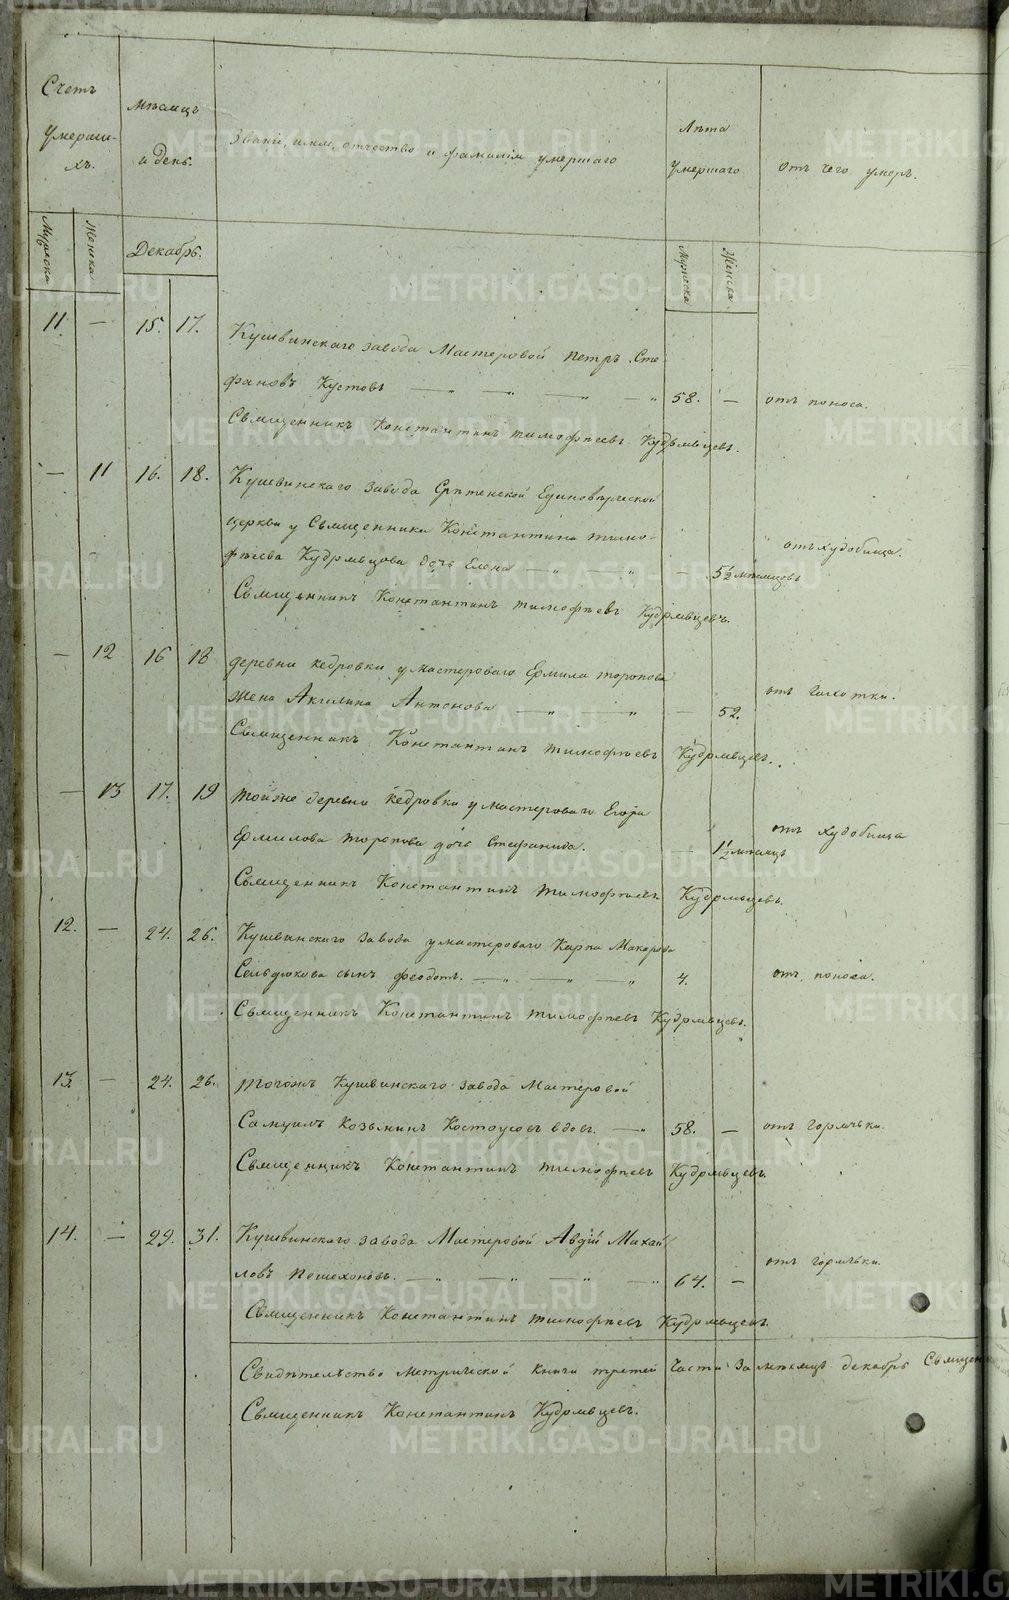 Счетъ
умерши-
хъ.
Мѣсяцъ
и день.
Званіе, имя, отчество и фамилія умершаго
Лѣта
умершаго
отъ чего умеръ.
Мужеска
Женска
Декабрь.
Мужеска
Женска
11. — 15. 17.
Кушвинскаго завода Мастеровой Петръ Сте-
фановъ Кустовъ — „ — „ — „ — „ 58. — отъ поноса.
Священникъ Константинъ Тимофѣевъ Кудрявцевъ.
— 11 16. 18. Кушвинскаго завода Срѣтенской Единовѣрческой
церкви у Священника Константина Тимо-
фѣева Кудрявцова дочь Елена — „ — „ — 5½ мѣсяцовъ отъ худобища.
Священникъ Константинъ Тимофѣевъ Кудрявцевъ.
— 12 16 18 деревни Кедровки у мастероваго Ермила Торопова
жена Акилина Антонова — „ — „ — 52. отъ чахотки.
Священникъ Константинъ Тимофѣевъ Кудрявцевъ.
— 13 17. 19 Тойже деревни Кедровки у мастероваго Егора
Ермилова Торопова дочь Стефанида. 1½ мѣсяцъ отъ худобища
Священникъ Константинъ Тимофѣевъ Кудрявцевъ.
12. — 24. 26. Кушвинскаго завода у мастероваго Карпа Макарова
сынъ Феодотъ. — „ — „ — „ 4. отъ поноса.
Священникъ Константинъ Тимофѣевъ Кудрявцевъ.
13. — 24. 26. Тогожъ Кушвинскаго завода Мастеровой
Самуилъ Козьминъ Костоусовъ вдовъ. — „ 58. — отъ горячки.
Священникъ Константинъ Тимофѣевъ Кудрявцевъ.
14. — 29. 31. Кушвинскаго завода Мастеровой Авдій Михай
ловъ Пошехоновъ. — „ — „ — „ — „ 64. — отъ горячки.
Священникъ Константинъ Тимофѣевъ Кудрявцевъ.
Свидѣтельство метрической книги третей части за мѣсяцъ декабрь Священ
Священникъ Константинъ Кудрявцевъ.
METRIKI.GASO-URAL.RU